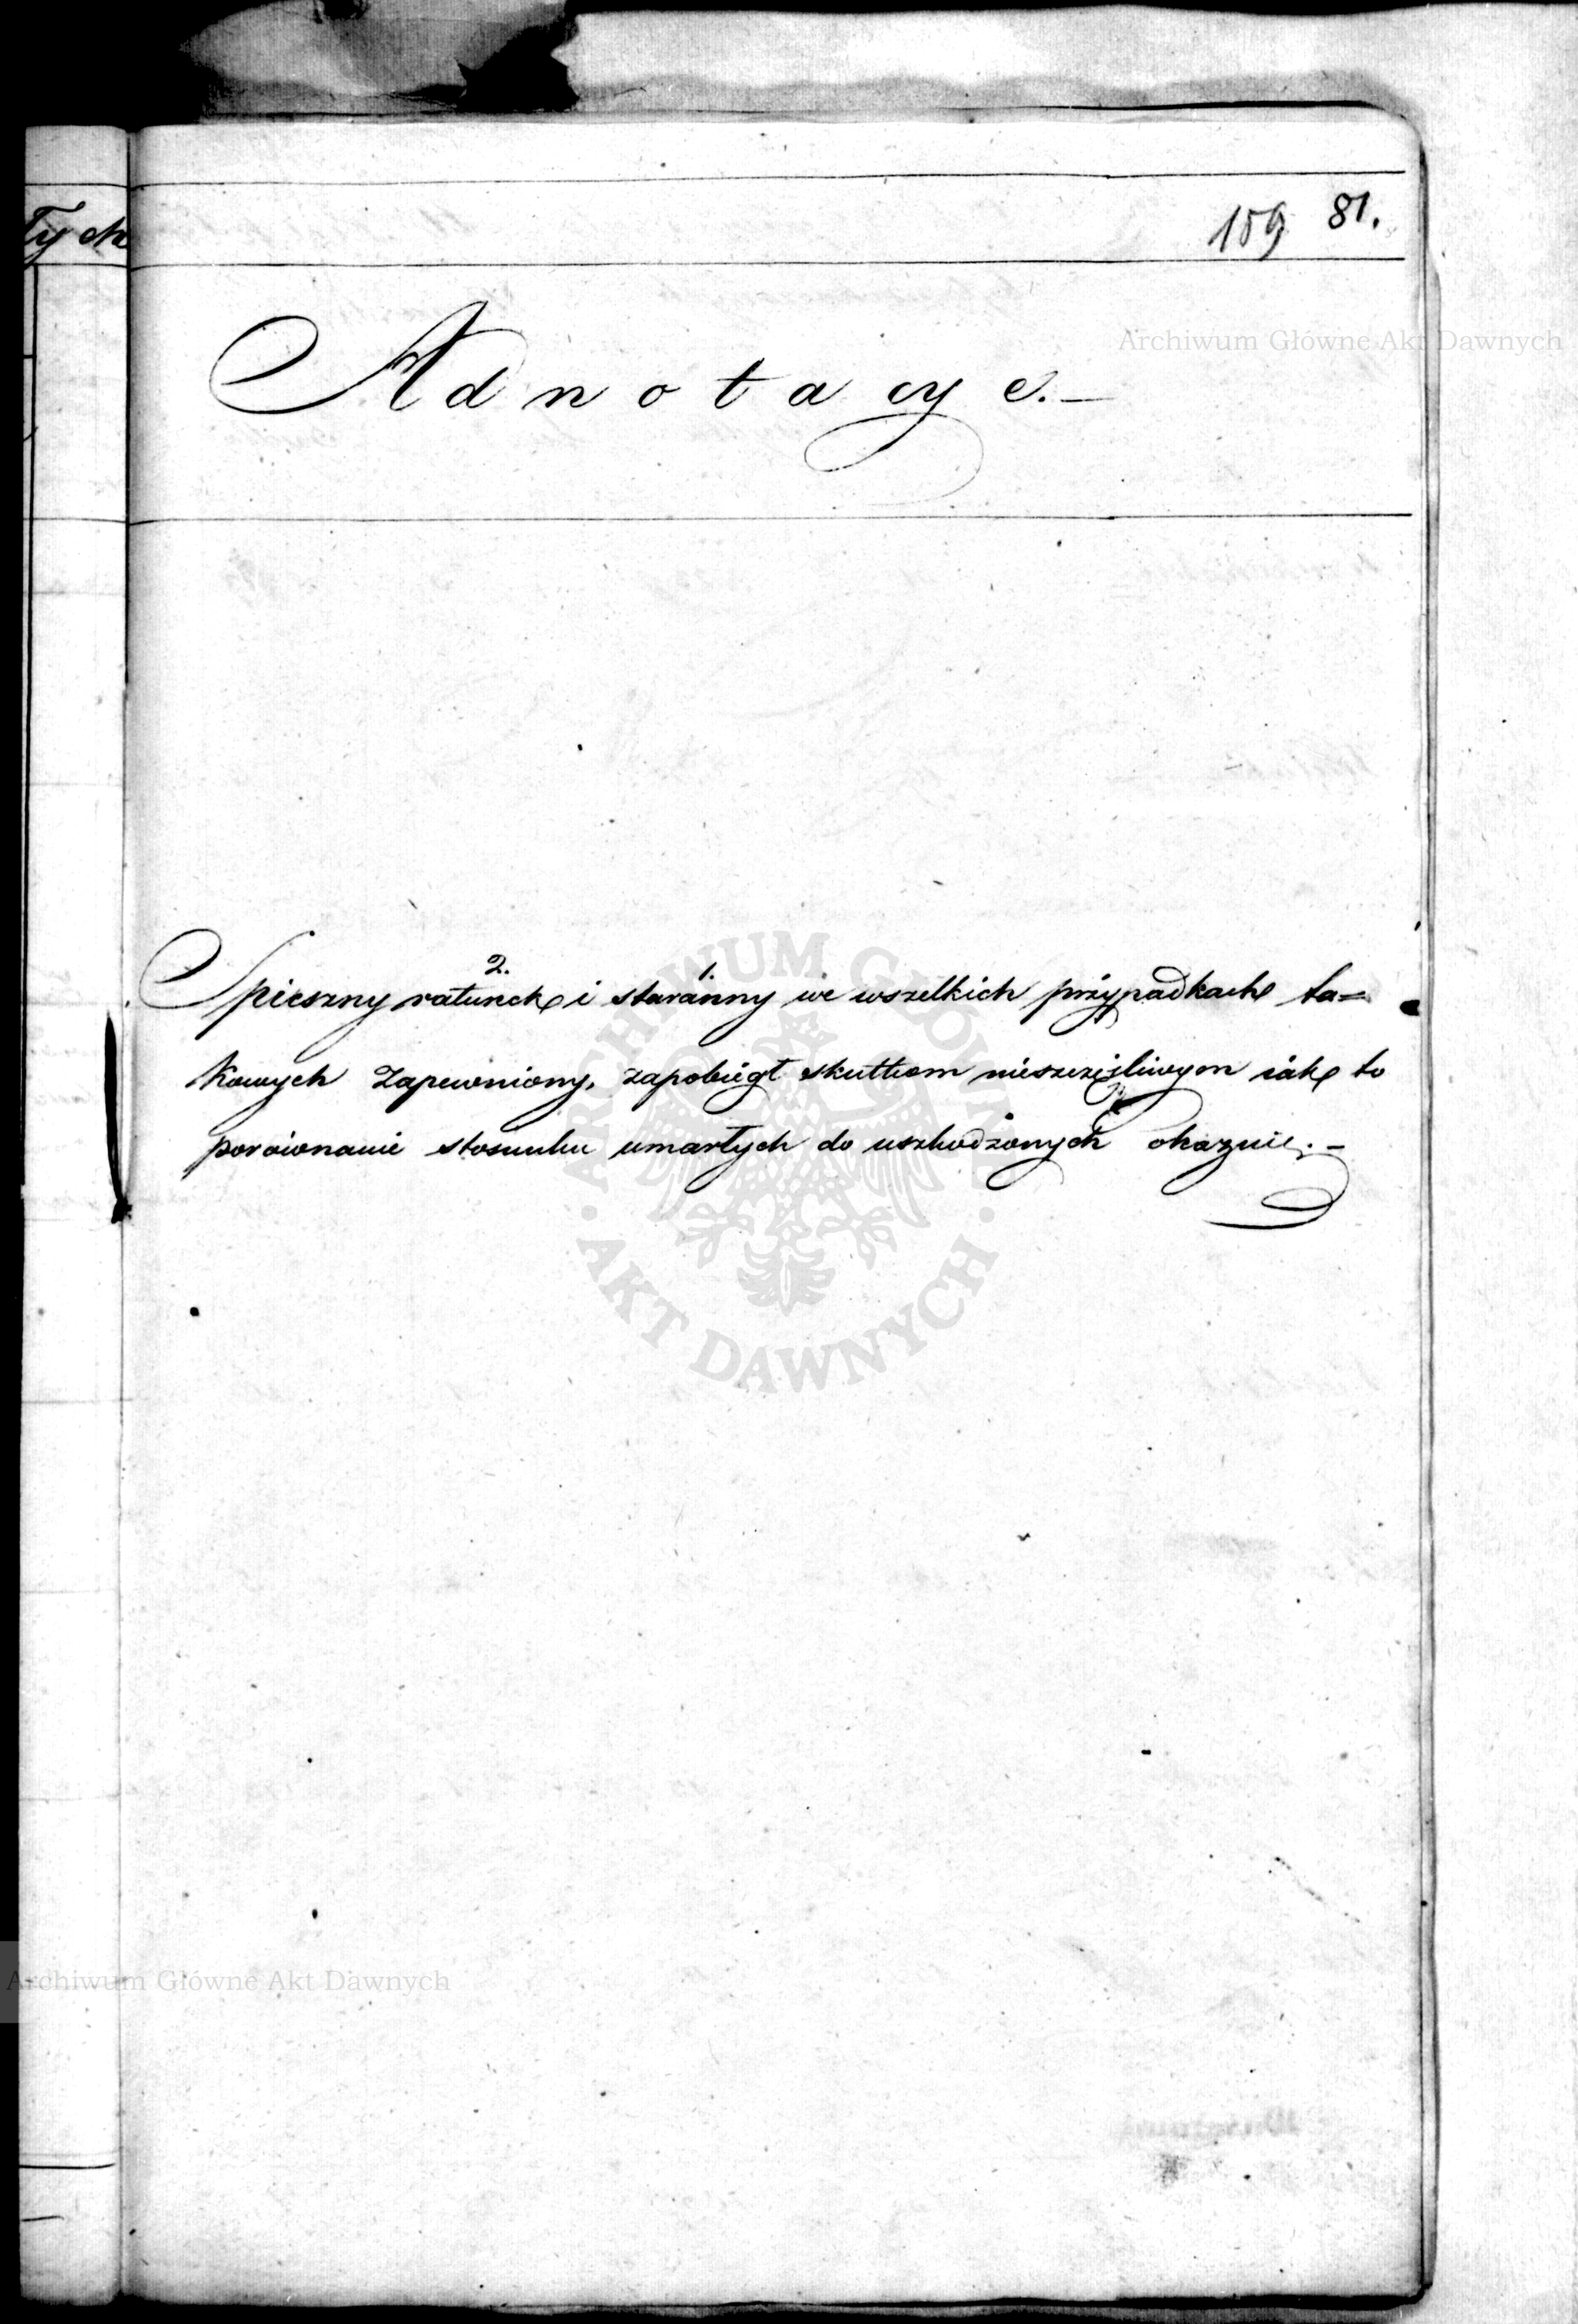 tych
159 81.
Archiwum Główne Akt Dawnych
Adnotacye.—
2. 1.
Spieszny ratunek i staranny we wszelkich przypadkach ta=
kowych zapewniony, zapobiegł skutkom nieszczęśliwym iak to
porównanie stosunku umarłych do uszkodzonych okazuie.—
ARCHIWUM GŁÓWNE
AKT DAWNYCH
Archiwum Główne Akt Dawnych